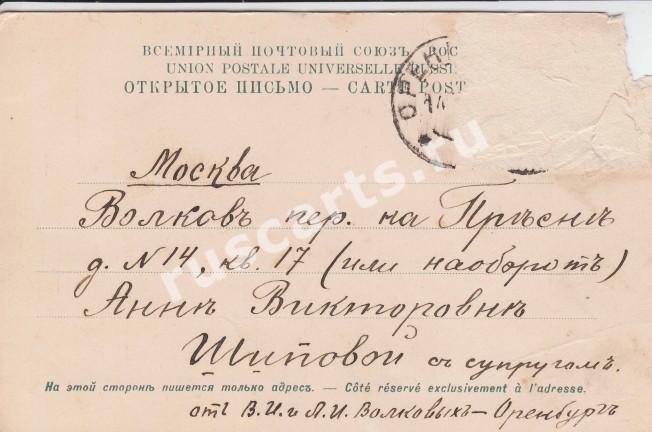 ВСЕМІРНЫЙ ПОЧТОВЫЙ СОЮЗЪ. РОС
UNION POSTALE UNIVERSELLE RUSSI
ОТКРЫТОЕ ПИСЬМО — CARTE POST
ОРЕН
14
Москва
Волковъ пер. на Прѣснѣ
д. N 14, кв. 17 (или наоборотъ)
Аннѣ Викторовнѣ
Шиповой съ супругомъ.
На этой сторонѣ пишется только адресъ. — Côté réservé exclusivement à l'adresse.
отъ В.И. и Л.И. Волковыхъ — Оренбургъ
ruscarts.ru